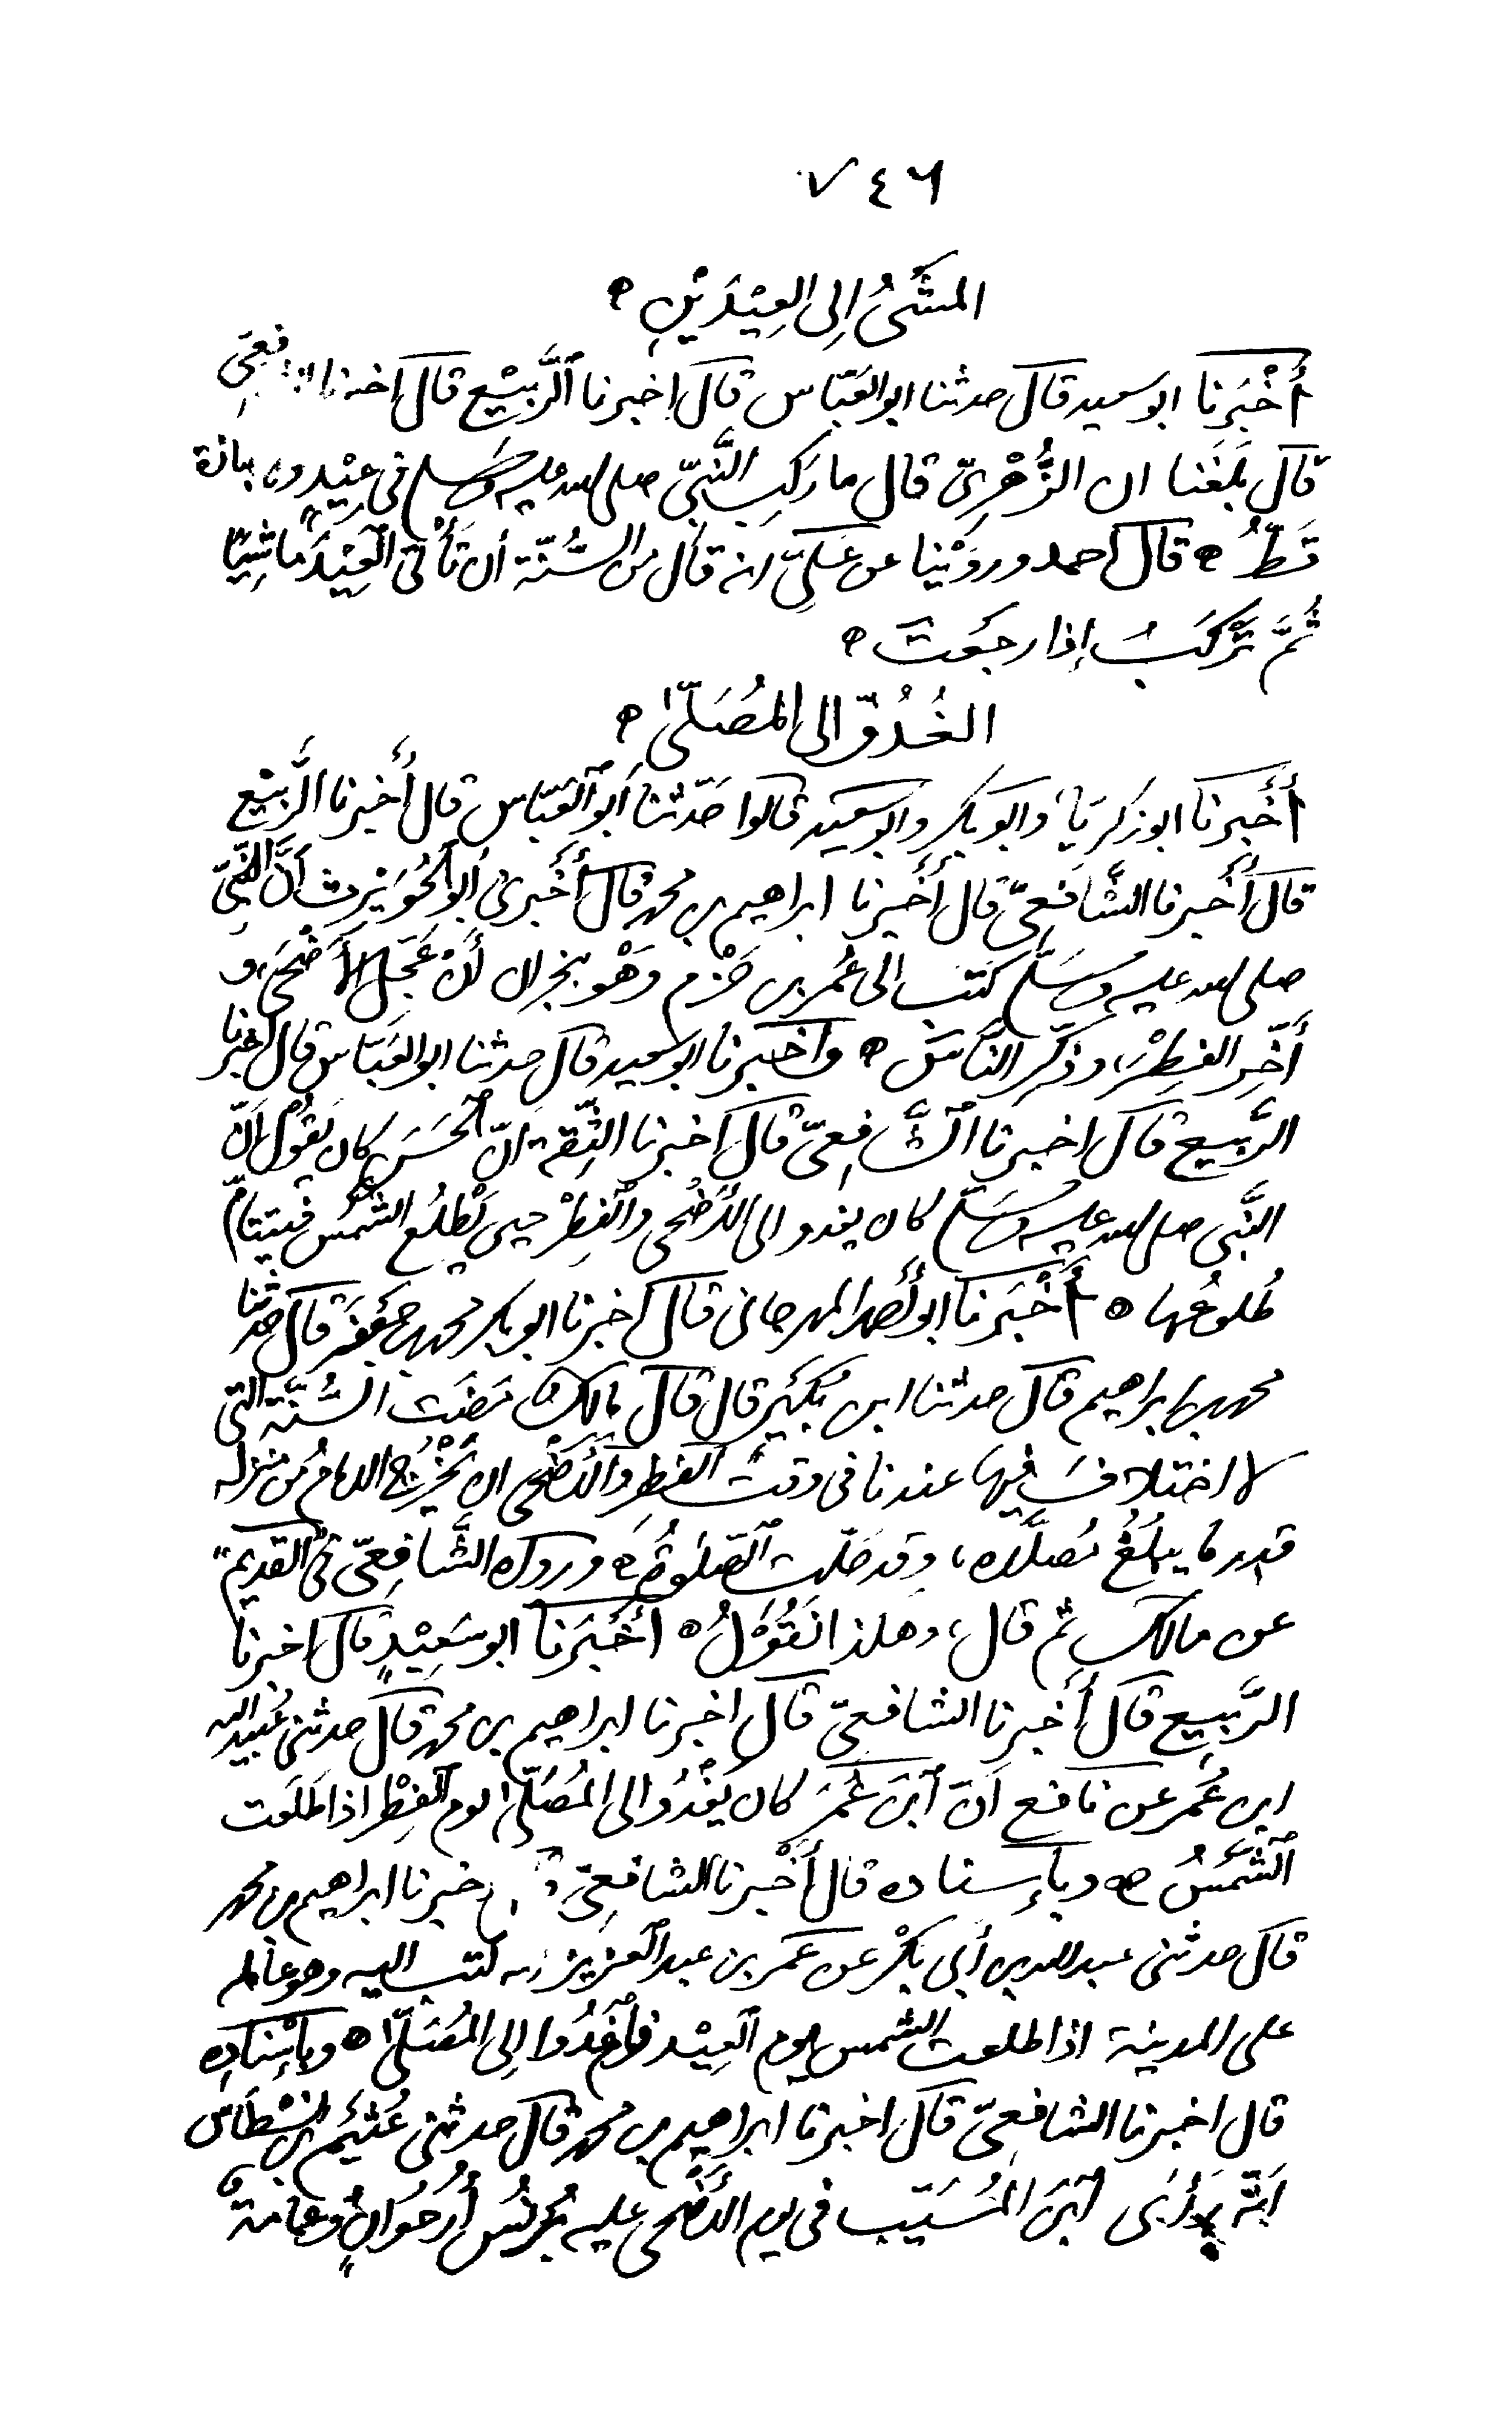 ٧٤٦
المَشْىُ إِلى العِيْدَيْنِ
أَخْبَرَنا ابو سعيد قال حدثنا ابو العَبّاس قال اخبرنا الرَّبِيْع قال اخبرنا الشافعى
قال بَلَغَنا ان الزُّهْرِىّ قال ما رَكِبَ النَّبىّ صلى الله عليه وسلم فى عِيْدٍ ولا جنازة
قَطُّ ه قال احمد ورَوَيْنا عن عَلىّ انه قال من السُّنّة أن تَأْتى العِيْدَ مَاشِيًا
ثُمَّ تَرْكَبُ إذا رجَعتَ ه
الغُدُوّ الى المُصَلّىٰ ه
أَخْبَرنا ابو زكريّا وابو بكر وابو سَعِيد قالوا حَدّثنا أَبو العَبّاس قال أَخْبرنا الرَّبِيْع
قال أَخْبرنا الشَّافِعىّ قال أَخْبرنا ابراهيم بن محمد قال أَخْبرنى أبو الحُوَيْرث أَنَّ النَّبِىّ
صلى الله عليه وسَلَّم كَتَبَ الى عُمَر بن حَزْم وَهْو بنجران أَنْ عَجِّلْ الأَضْحىٰ، و
أَخِّرِ الفِطْرَ، وذَكِّر النَّاسَ ه وأخبرنا ابو سعيد قال حدثنا ابو العَبّاس قال اخبرنا
الرَّبيع قال اخبرنا الشَّافِعىّ قال اخبرنا الثِّقة أنّ الحَسَن كان يَقُول أَنّ
النَّبى صلى الله عليه وسَلَّم كان يغدو الى الأَضْحى والفِطْر حين تَطْلُع الشَّمْس فيتتامّ
طُلوعُها ه أَخْبَرنا ابو أحمد المهرجانى قال اخبرنا ابو بكر محمد بن جَعْفَر قال حدثنا
محمد بن ابراهيم قال حدثنا ابن بُكَيْر قال قال مالك مَضَت السُّنَّة التى
لا اختلافَ فِيها عندنا فى وقت الفطر والأَضْحى ان يَخْرُجَ الامامُ من منزله
قدر ما يبلغُ مُصَلَّاه، وقد حَلّت الصَّلٰوةُ ه ورواه الشَّافِعىّ فى القديم
عن مالك ثم قال، وهٰذا نَقُوْلُ ه أَخْبَرَنا ابو سَعِيْدٍ قال اخبرنا
الرَّبيع قال أَخبرنا الشافعىّ قال اخبرنا ابراهيم بن محمد قال حدثنى عُبَيد الله
ابن عُمَر عن نافع أَنّ ابنَ عُمَرَ كان يَغْدُو الى المُصَلّىٰ يوم الفِطْر اذا طَلَعَت
الشَّمْسُ ه وبإسناده قال أَخْبرنا الشافعِىّ اخبرنا ابراهيم بن محمد
قال حدثنى عبد الله بن أَبى بَكْر عن عُمَر بن عبد العزيز انه كتب اليه وهو عامله
على المدينة اذا طلعت الشمس يوم العِيْد فاغْدُوا إلى المُصَلّىٰ ه وبإسْنادِه
قال اخبرنا الشافعِىّ قال اخبرنا ابراهيم بن محمد قال حدثنى عُثَيْم بن نِسْطَاس
أَنّه رأى ابنَ المُسَيّب فى يوم الأَضْحى عليه بُرْنُس أُرْجُوَانٍ وعمامةٌ